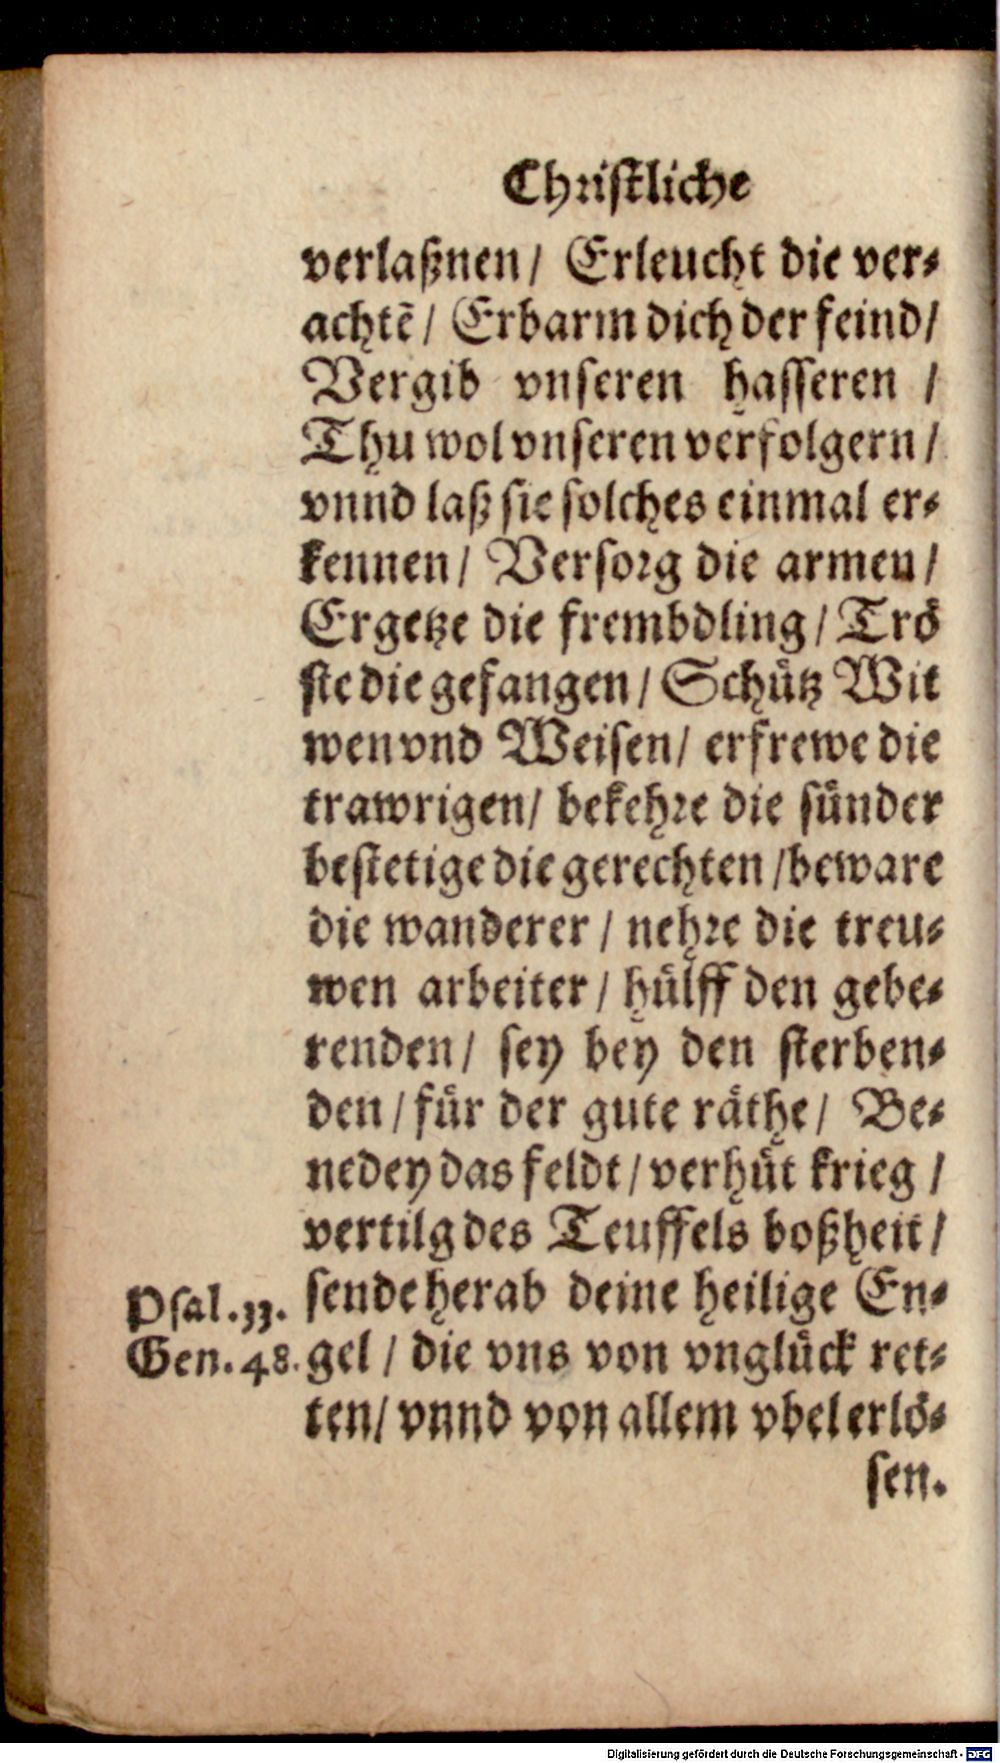 Christliche
verlaßnen / Erleucht die ver⸗
achtẽ / Erbarm dich der feind /
Vergib vnseren hasseren /
Thu wol vnseren verfolgern /
vnnd laß sie solches einmal er⸗
kennen / Versorg die armen /
Ergetze die frembdling / Trö
ste die gefangen / Schütz Wit
wen vnd Weisen / erfrewe die
trawrigen / bekehre die sünder
bestetige die gerechten / beware
die wanderer / nehre die treu⸗
wen arbeiter / hülff den gebe⸗
renden / sey bey den sterben⸗
den / für der gute räthe / Be⸗
nedey das feldt / verhüt krieg /
vertilg des Teuffels boßheit /
Psal. 33. sende herab deine heilige En⸗
Gen. 48. gel / die vns von vnglück ret⸗
ten / vnnd von allem vbel erlö⸗
sen.
Digitalisierung gefördert durch die Deutsche Forschungsgemeinschaft - DFG